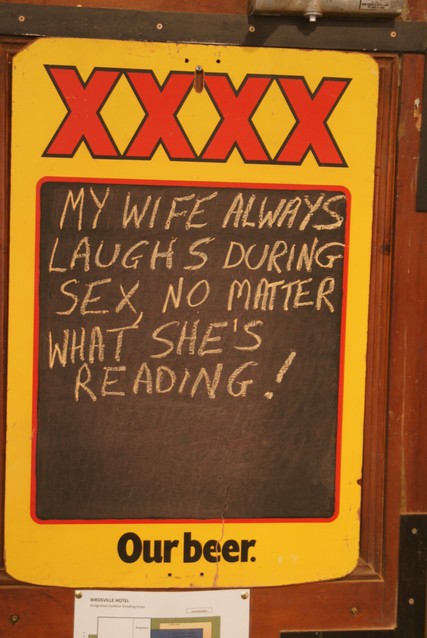 XXXX
MY WIFE ALWAYS
LAUGHS DURING
SEX, NO MATTER
WHAT SHE'S
READING!
Our beer.
BIRDSVILLE HOTEL